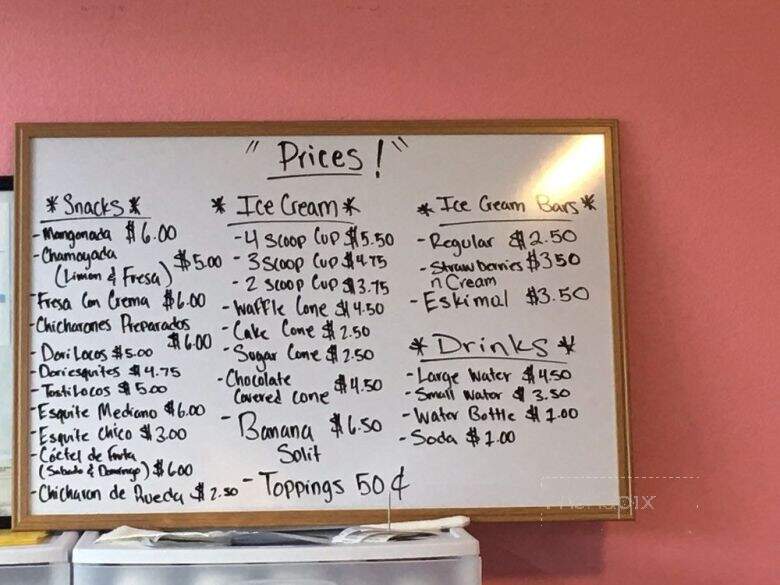 " Prices! "
* Snacks *
- Mangonada $6.00
- Chamoyada
(Limon & Fresa) $5.00
- Fresa Con Crema $6.00
- Chicharones Preparados
$6.00
- DoriLocos $5.00
- Doriesquites $4.75
- TostiLocos $5.00
- Esquite Mediano $6.00
- Esquite Chico $3.00
- Cóctel de Fruta
(Sabado & Domingo) $6.00
- Chicharon de Rueda $2.50
* Ice Cream *
- 4 Scoop Cup $5.50
- 3 Scoop Cup $4.75
- 2 Scoop Cup $3.75
- Waffle Cone $4.50
- Cake Cone $2.50
- Sugar Cone $2.50
- Chocolate
Covered Cone $4.50
- Banana $6.50
Split
- Toppings 50¢
* Ice Cream Bars *
- Regular $2.50
- Strawberries $3.50
n Cream
- Eskimal $3.50
* Drinks *
- Large Water $4.50
- Small Water $3.50
- Water Bottle $1.00
- Soda $1.00